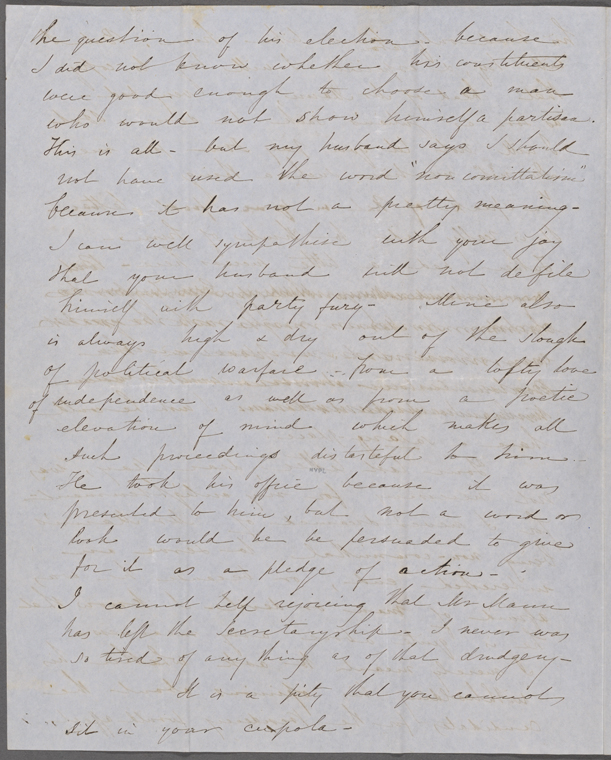 the question of his election because
I did not know whether his constituents
were good enough to choose a man
who would not show himself a partisan.
This is all - but my husband says I should
not have used the word "noncomittalism"
because it has not a pretty meaning -
I can well sympathise with your joy
that your husband will not defile
himself with party fury - Mine also
is always high & dry out of the slough
of political warfare - from a lofty love
of independence as well as from a poetic
elevation of mind which makes all
such proceedings distasteful to him -
He took his office because it was
presented to him, but not a word or
look would he be persuaded to give
for it as a pledge of action -
I cannot help rejoicing that Mr Mann
has left the Secretaryship - I never was
so tired of any thing as of that drudgery -
It is a pity that you cannot
sit in your cupola -